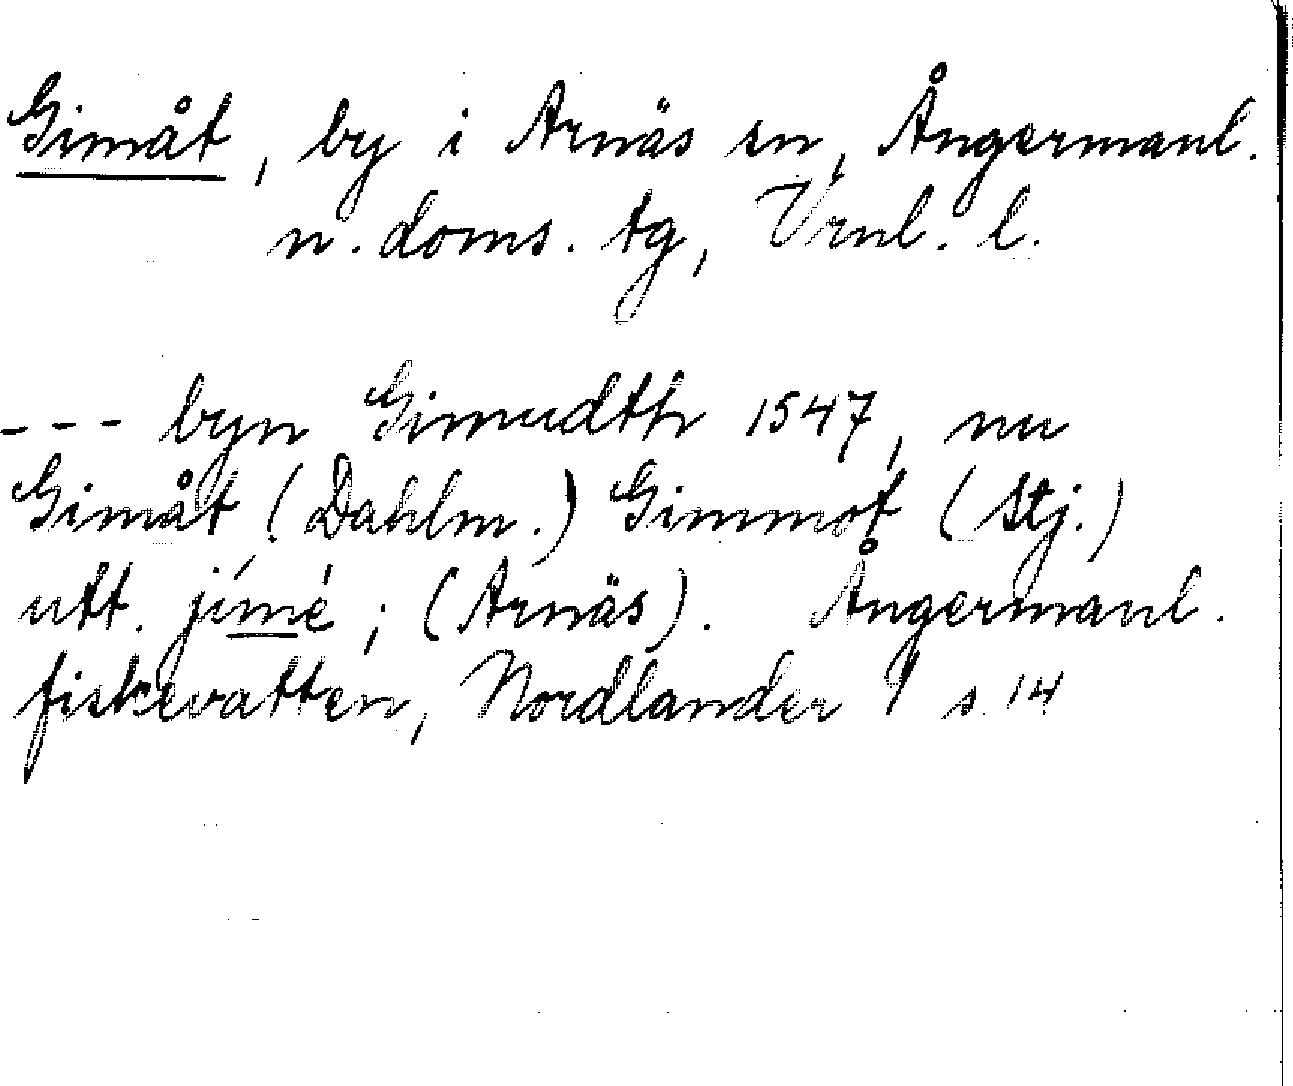 Gimåt, by i Arnäs sn, Ångermanl.
n. doms. tg, Vrnl. l.
--- byn Gimudth 1547, nu
Gimåt (Dahlm.) Gimmot (Stj.)
utt. jímé; (Arnäs). Ångermanl.
fiskevatten, Nordlander s. 14